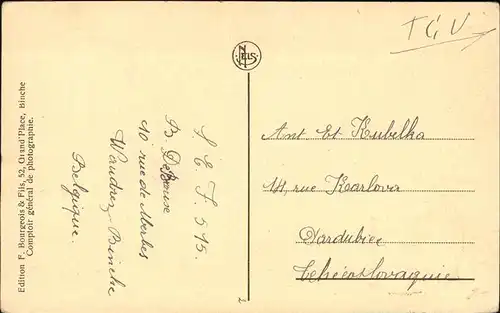 Edition F. Bourgeois & Fils, 52, Grand'Place, Binche
Comptoir général de photographie.
NELS
TCV
S. E. F. 515.
B. DeBouse
10 rue de Merbes
Waudrez-Binche
Belgique.
Ant. Et Kubelka
14, rue Karlova
Pardubice
Tchécoslovaquie